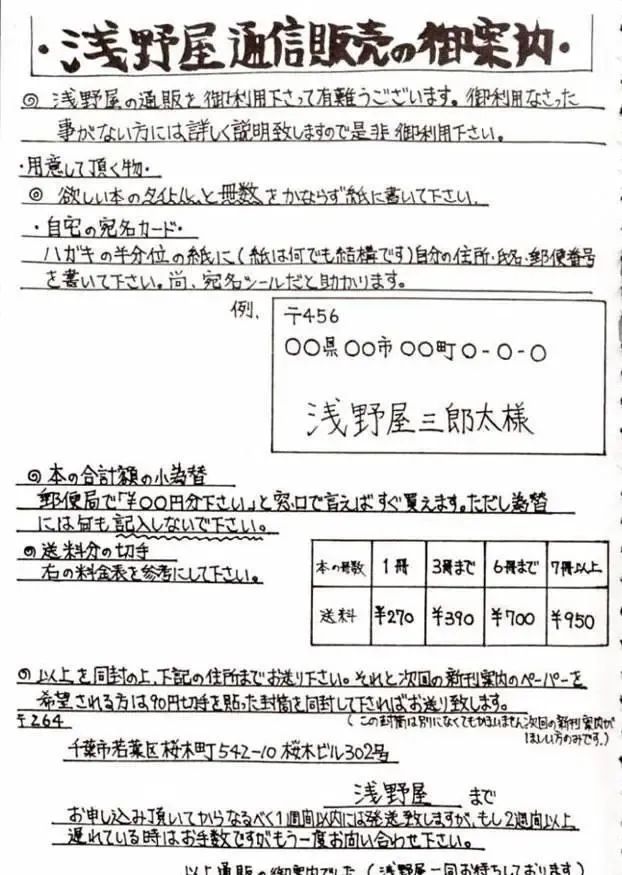 ・浅野屋通信販売の御案内・
◎ 浅野屋の通販を御利用下さって有難うございます。御利用なさった
事がない方には詳しく説明致しますので是非御利用下さい。
・用意して頂く物・
◎ 欲しい本のタイトルと冊数をかならず紙に書いて下さい。
・自宅の宛名カード・
ハガキの半分位の紙に(紙は何でも結構です)自分の住所・氏名・郵便番号
を書いて下さい。尚、宛名シールだと助かります。
例、
〒456
〇〇県〇〇市〇〇町〇-〇-〇
浅野屋三郎太様
◎本の合計額の小為替
郵便局で「¥〇〇円分下さい」と窓口で言えばすぐ買えます。ただし為替
には何も記入しないで下さい。
◎送料分の切手
右の料金表を参考にして下さい。
本の冊数 1冊 3冊まで 6冊まで 7冊以上
送料 ¥270 ¥390 ¥700 ¥950
◎以上を同封の上、下記の住所までお送り下さい。それと次回の新刊案内のペーパーを
希望される方は90円切手を貼った封筒を同封して下さればお送り致します。
(この封筒は別になくてもかまいません次回の新刊案内が
ほしい方のみです。)
〒264
千葉市若葉区桜木町542-10桜木ビル302号
浅野屋 まで
お申し込み頂いてからなるべく1週間以内には発送致しますが、もし2週間以上
遅れている時はお手数ですがもう一度お問い合わせ下さい。
以上通販の御案内でした(浅野屋一同お待ちしております)